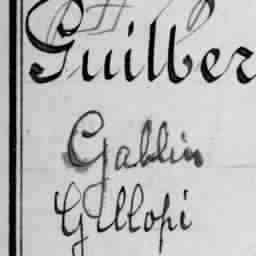 Guilber
Gablin
Gillopi